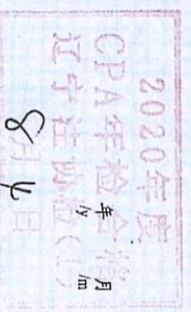 2020年度
CPA年检合格
辽宁注协检(1)
8月4日
年 月
/y /m